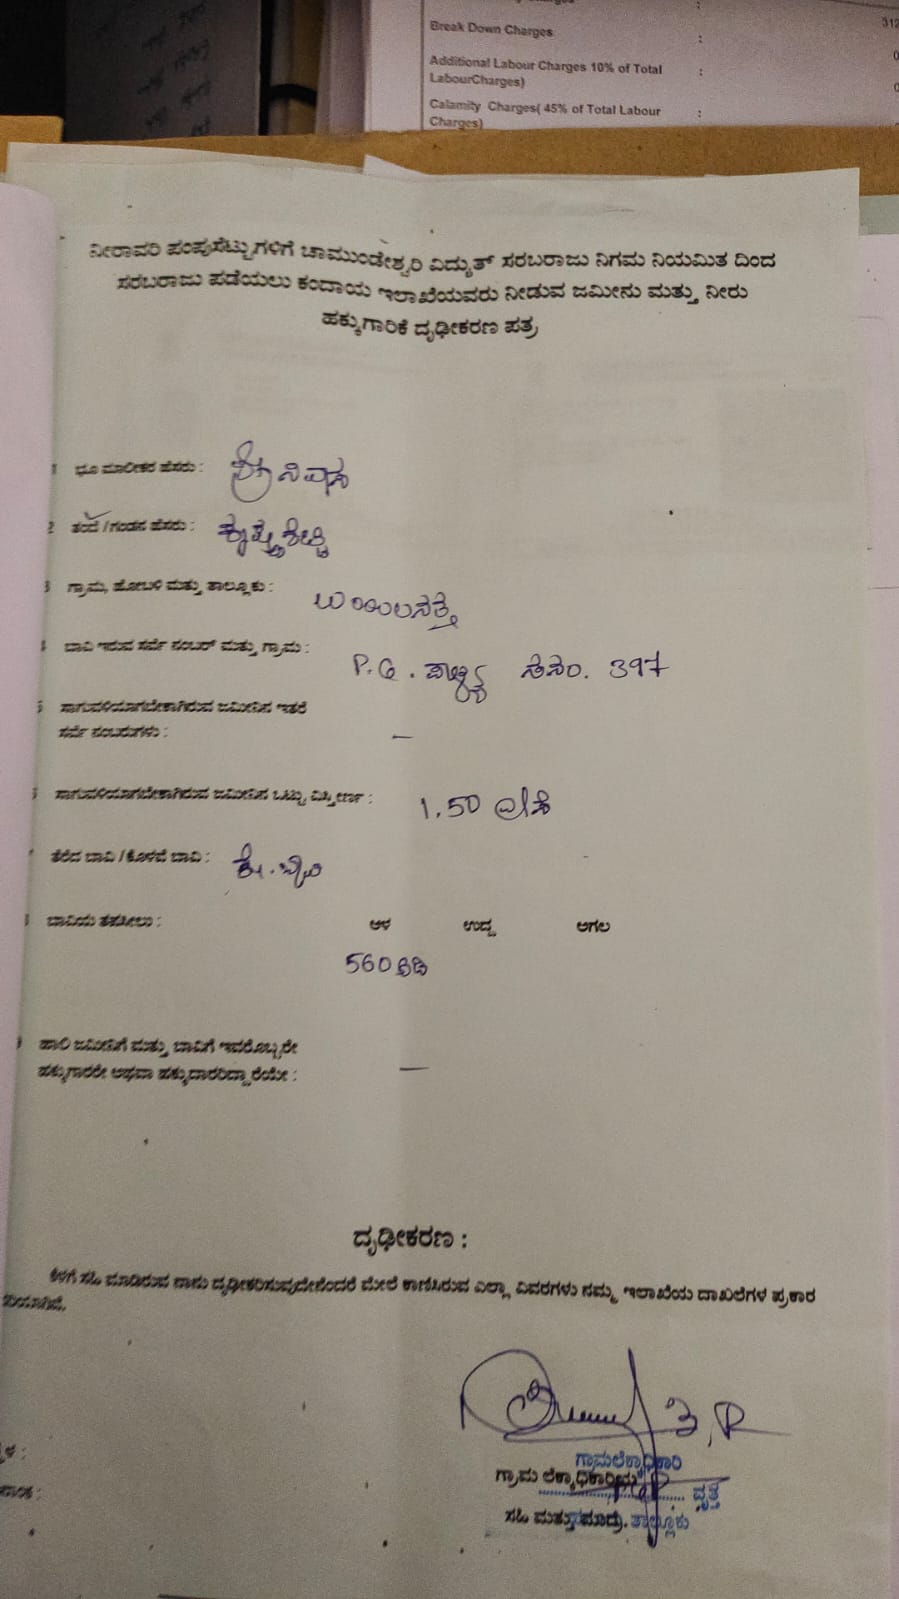 Break Down Charges :
312
Additional Labour Charges 10% of Total : 0
LabourCharges)
0
Calamity Charges( 45% of Total Labour :
Charges)
ನೀರಾವರಿ ಪಂಪುಸೆಟ್ಟುಗಳಿಗೆ ಚಾಮುಂಡೇಶ್ವರಿ ವಿದ್ಯುತ್ ಸರಬರಾಜು ನಿಗಮ ನಿಯಮಿತ ದಿಂದ
ಸರಬರಾಜು ಪಡೆಯಲು ಕಂದಾಯ ಇಲಾಖೆಯವರು ನೀಡುವ ಜಮೀನು ಮತ್ತು ನೀರು
ಹಕ್ಕುಗಾರಿಕೆ ದೃಢೀಕರಣ ಪತ್ರ
1 ಭೂ ಮಾಲೀಕರ ಹೆಸರು : ಶ್ರೀನಿವಾಸ
2 ತಂದೆ / ಗಂಡನ ಹೆಸರು :
3 ಗ್ರಾಮ, ಹೋಬಳಿ ಮತ್ತು ತಾಲ್ಲೂಕು :
ಬಾವಿ ಇರುವ ಸರ್ವೆ ನಂಬರ್ ಮತ್ತು ಗ್ರಾಮ : 397
5 ಸಾಗುವಳಿಯಾಗಬೇಕಾಗಿರುವ ಜಮೀನಿನ ಇತರೆ
ಸರ್ವೆ ನಂಬರುಗಳು : —
ಸಾಗುವಳಿಯಾಗಬೇಕಾಗಿರುವ ಜಮೀನಿನ ಒಟ್ಟು ವಿಸ್ತೀರ್ಣ : 1.50 ಎಕರೆ
ತೆರೆದ ಬಾವಿ / ಕೊಳವೆ ಬಾವಿ : ಕೊ. ಬಾವಿ
ಬಾವಿಯ ತಪಶೀಲು : ಆಳ ಉದ್ದ ಅಗಲ
560 ಅಡಿ
ಹಾಲಿ ಜಮೀನಿಗೆ ಮತ್ತು ಬಾವಿಗೆ ಇವರೊಬ್ಬರೇ
ಹಕ್ಕುಗಾರರೇ ಅಥವಾ ಹಕ್ಕುದಾರರಿದ್ದಾರೆಯೇ : —
ದೃಢೀಕರಣ :
ಕೆಳಗೆ ಸಹಿ ಮಾಡಿರುವ ನಾನು ದೃಢೀಕರಿಸುವುದೇನೆಂದರೆ ಮೇಲೆ ಕಾಣಿಸಿರುವ ಎಲ್ಲಾ ವಿವರಗಳು ನಮ್ಮ ಇಲಾಖೆಯ ದಾಖಲೆಗಳ ಪ್ರಕಾರ
ಗ್ರಾಮಲೆಕ್ಕಾಧಿಕಾರಿ
ಗ್ರಾಮ ಲೆಕ್ಕಾಧಿಕಾರಿಯ
ವೃತ್ತ
ಸಹಿ ಮತ್ತು ಮೊಹರು. ತಾಲ್ಲೂಕು